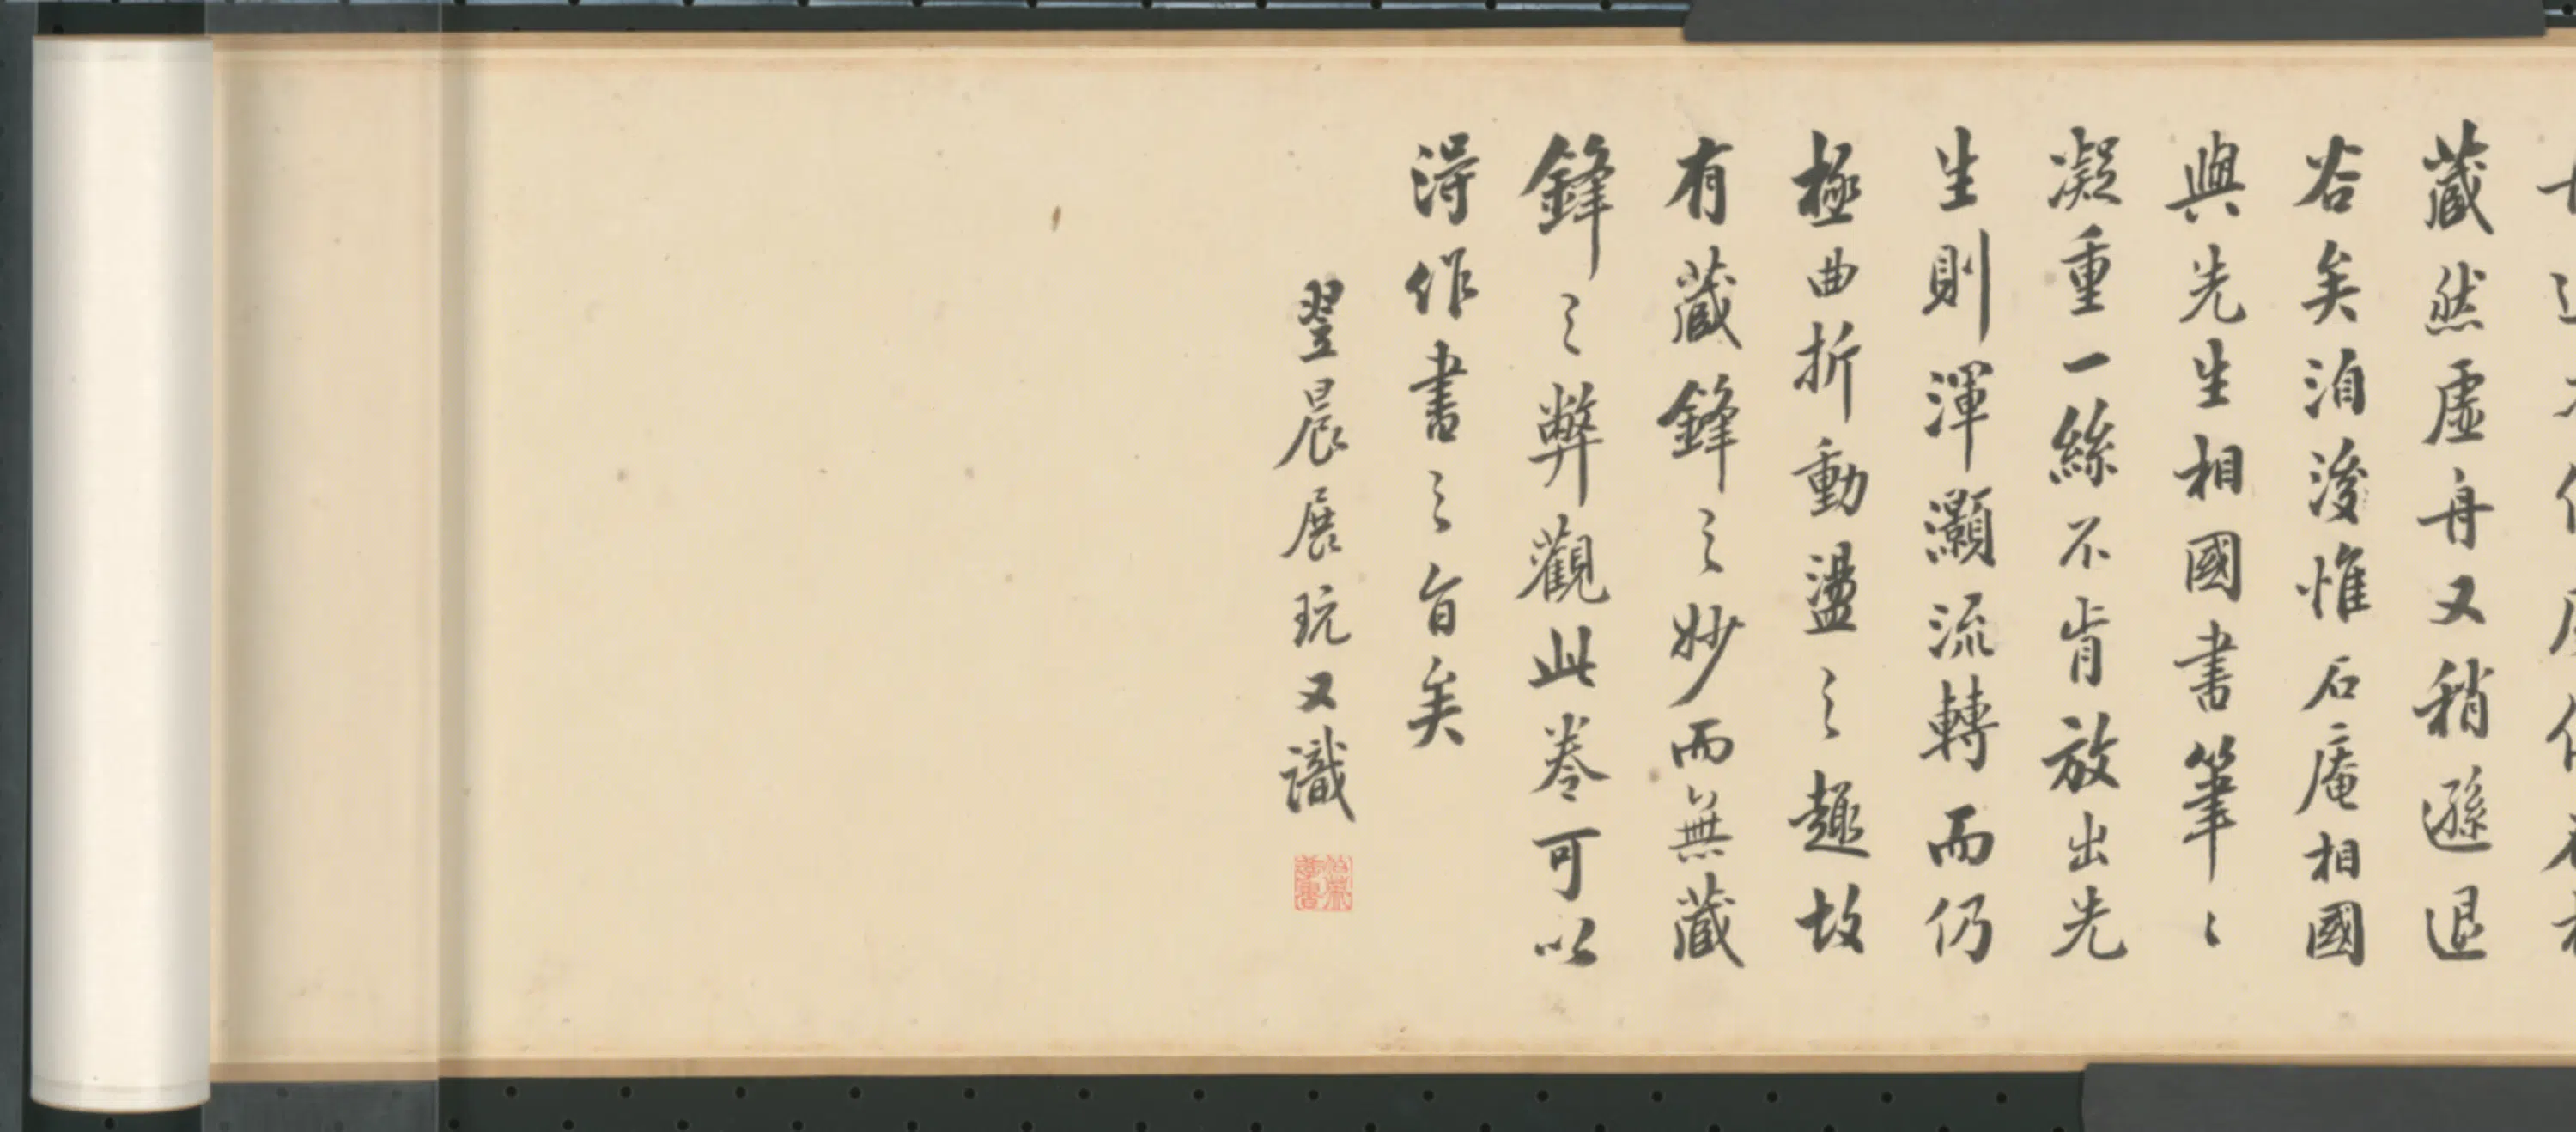 藏然虛舟又稍遜退
谷矣洎後惟石庵相國
與先生相國書筆〻
凝重一絲不肯放出先
生則渾灝流轉而仍
極曲折動盪之趣故
有藏鋒之妙而無藏
鋒之弊觀此卷可以
得作書之旨矣
翌晨展玩又識